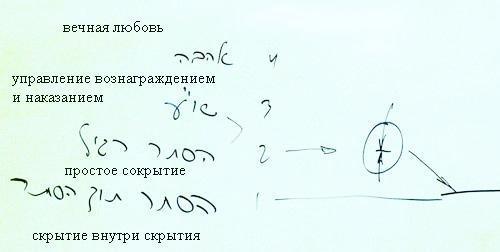 вечная любовь
4 אהבה
управление вознаграждением
и наказанием
3 שו"ע
2 הסתר רגיל
простое сокрытие
1 הסתר תוך הסתר
скрытие внутри скрытия